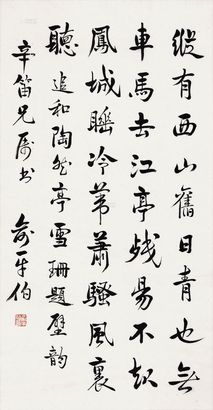 縱有西山舊日青也無
車馬去江亭殘昜不起
鳳城睡冷苇蕭騷風裏
聽 追和陶然亭雪珊題壁韵
辛笛兄属书
俞平伯